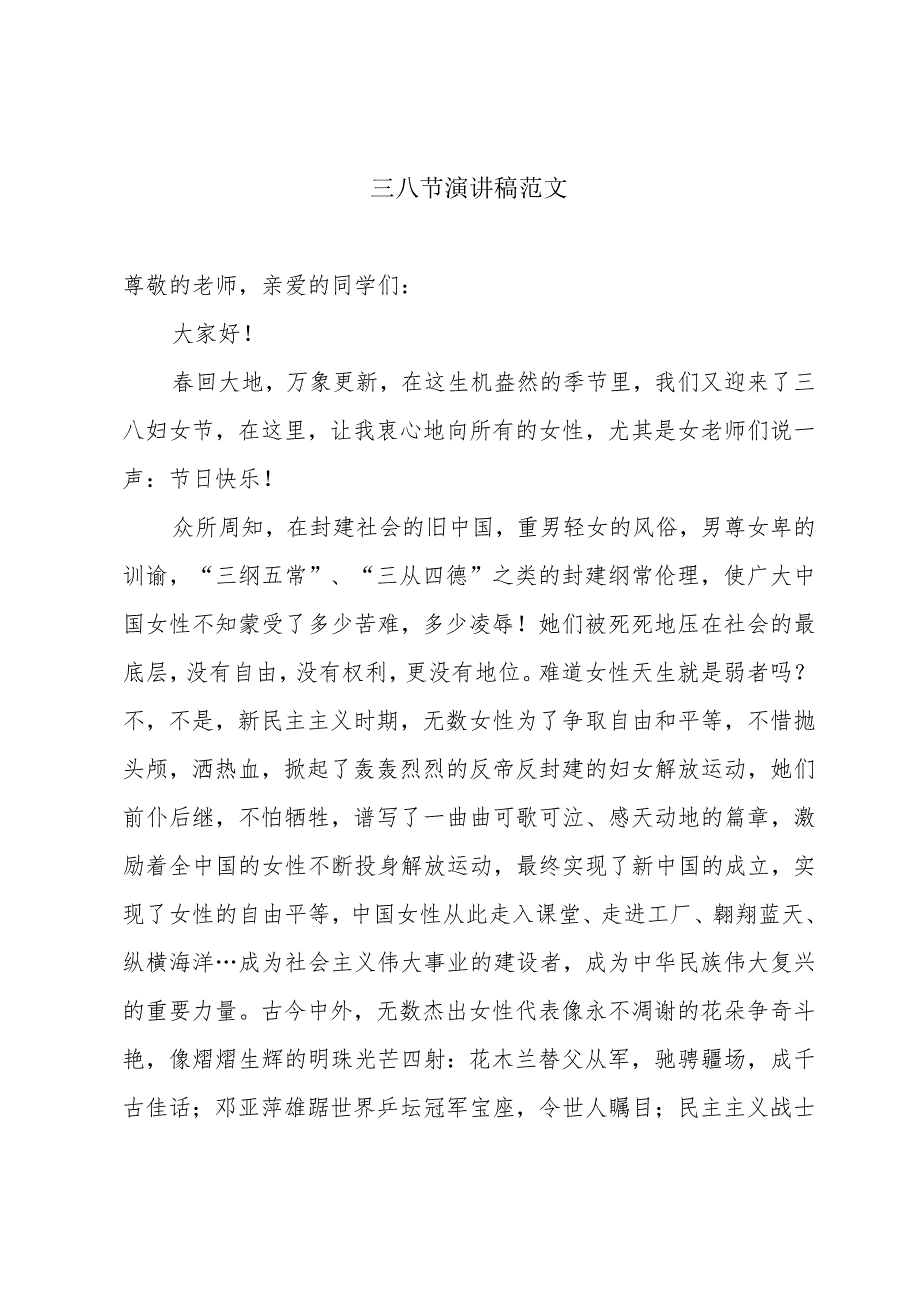 三八节演讲稿范文
尊敬的老师，亲爱的同学们：
大家好！
春回大地，万象更新，在这生机盎然的季节里，我们又迎来了三
八妇女节，在这里，让我衷心地向所有的女性，尤其是女老师们说一
声：节日快乐！
众所周知，在封建社会的旧中国，重男轻女的风俗，男尊女卑的
训谕，“三纲五常”、“三从四德”之类的封建纲常伦理，使广大中
国女性不知蒙受了多少苦难，多少凌辱！她们被死死地压在社会的最
底层，没有自由，没有权利，更没有地位。难道女性天生就是弱者吗？
不，不是，新民主主义时期，无数女性为了争取自由和平等，不惜抛
头颅，洒热血，掀起了轰轰烈烈的反帝反封建的妇女解放运动，她们
前仆后继，不怕牺牲，谱写了一曲曲可歌可泣、感天动地的篇章，激
励着全中国的女性不断投身解放运动，最终实现了新中国的成立，实
现了女性的自由平等，中国女性从此走入课堂、走进工厂、翱翔蓝天、
纵横海洋…成为社会主义伟大事业的建设者，成为中华民族伟大复兴
的重要力量。古今中外，无数杰出女性代表像永不凋谢的花朵争奇斗
艳，像熠熠生辉的明珠光芒四射：花木兰替父从军，驰骋疆场，成千
古佳话；邓亚萍雄踞世界乒坛冠军宝座，令世人瞩目；民主主义战士